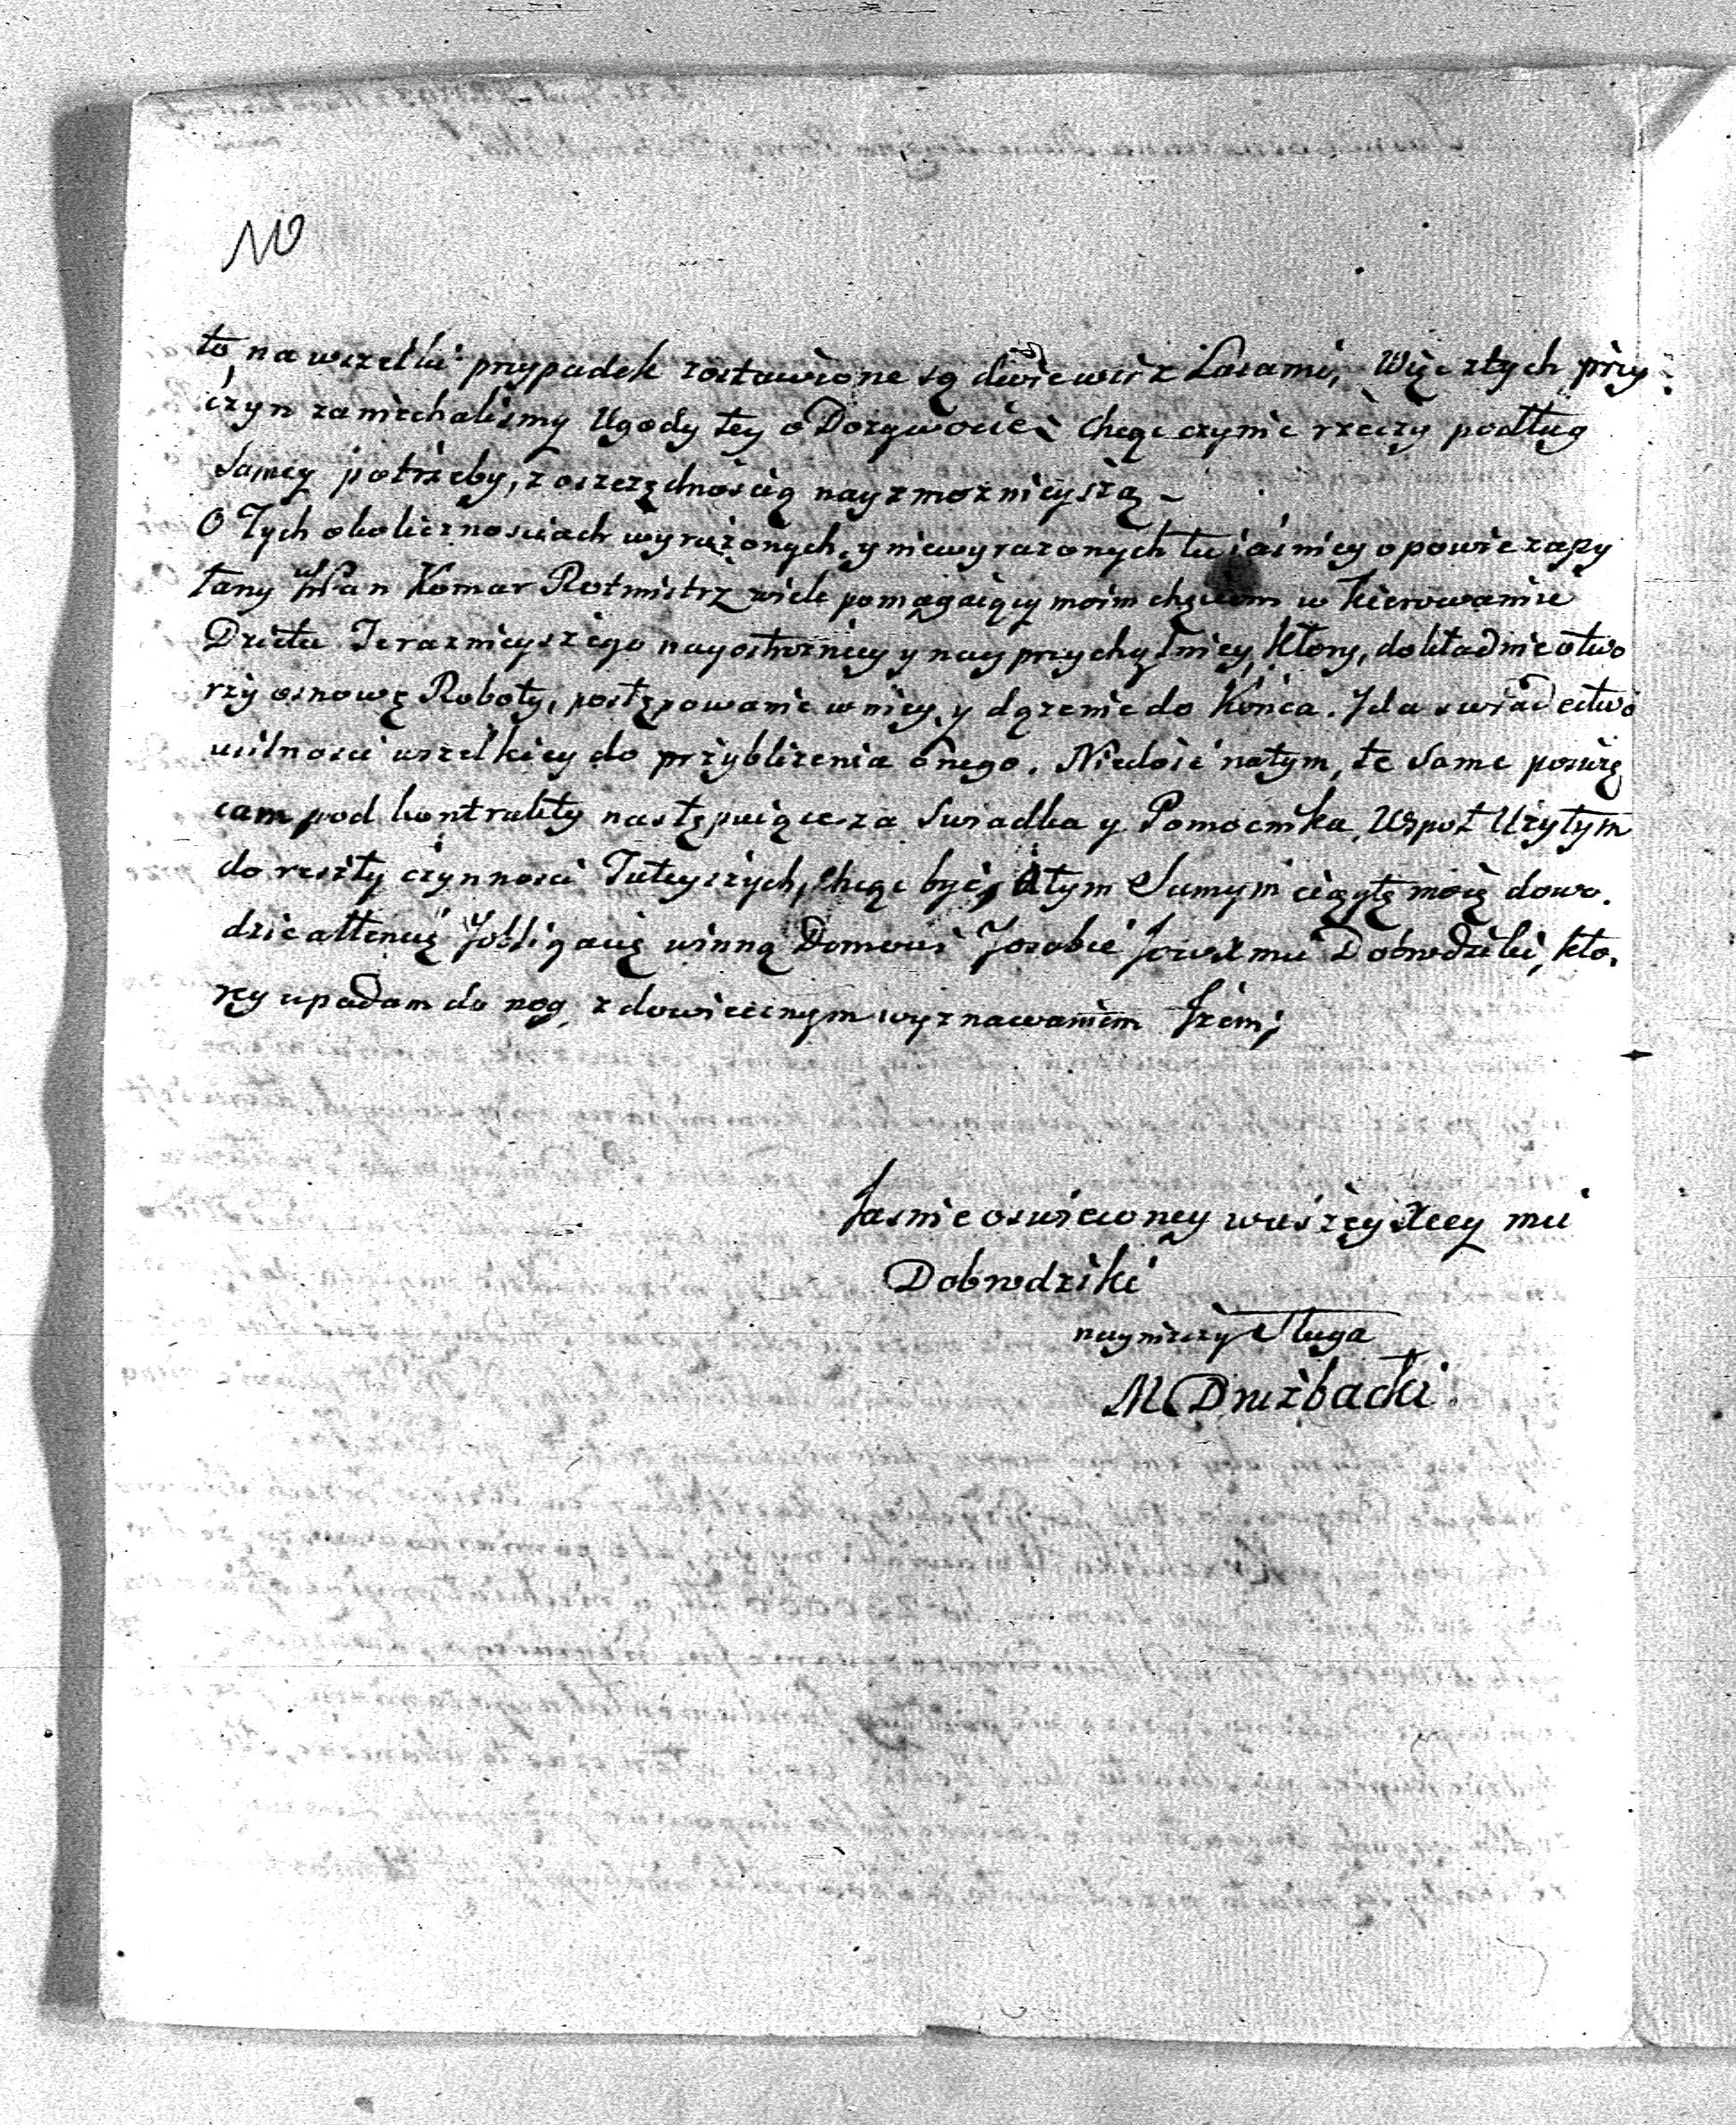 to, na wszelki przypadek zostawione są dwie wsi z Lasami, Więc z tych przy
czyn zaniechalismy Ugody tey o Dożywocie chcąc czynić rzeczy podług
Samey potrzeby, z oszczędnością nayzmożnieyszą
O Tych okolicznosciach wyrażonych, y niewyrazonych tu iaśniey opowie zapy
tany WPan Komar Rotmistrz wiele pomagaiący moim chęciom w kierowaniu
Dzieła Teraznieyszego nayostrozniey y nayprzychylniey, ktory, dokładnie otwo
rzy osnowę Roboty, postępowanie w niey, y dążenie do Końca. I da swiadectwo
usilnosci wszelkiey do przybliżenia onego. Niedość natym, te same posuwę
cam pod kontrakty następuiące za Swiadka y Pomocnika, Wspoł Użytym
do reszty czynnosci Tuteyszych, chcąc być, a tym Samym ciągłą moię dowo.
dzic attencię Jobligacię winną Domowi Josobie Jowxmu Dobrodziki, kto.
rey upadam do nog, z dowiecznym wyznawaniem Jżem;
Jasnie oswieconey waszey Xcey mu
Dobrodziki
nayniższy Sługa
M Drużbacki